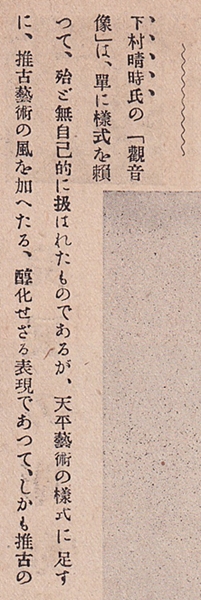 下村晴時氏の「觀音
像」は、單に樣式を賴
つて、殆ど無自己的に扱はれたものであるが、天平藝術の樣式に足す
に、推古藝術の風を加へたる、醇化せざる表現であつて、しかも推古の